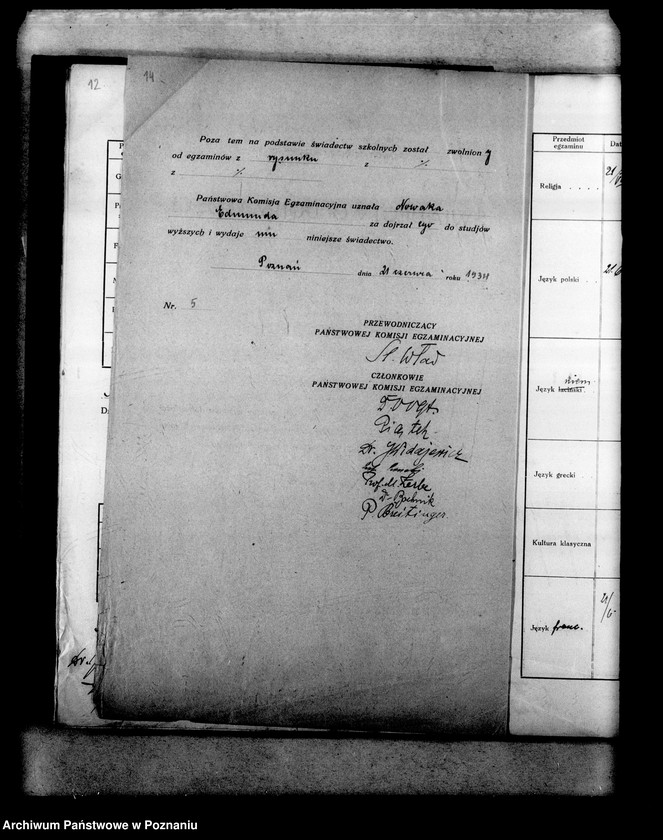 12
14
Poza tem na podstawie świadectw szkolnych został zwolniony
od egzaminów z rysunku z %
z %
Państwowa Komisja Egzaminacyjna uznała Nowaka
Edmunda za dojrzałego do studjów
wyższych i wydaje mu niniejsze świadectwo.
Poznań dnia 21 czerwca roku 1934
Nr. 5
PRZEWODNICZĄCY
PAŃSTWOWEJ KOMISJI EGZAMINACYJNEJ
St. Wład
CZŁONKOWIE
PAŃSTWOWEJ KOMISJI EGZAMINACYJNEJ
D Vogt
Piątek
Dr. J Widajewicz
Prof. M.
Dr
P. Breitinger
Przedmiot
egzaminu
Dat
Religja
21/
Język polski
21/6
Język łaciński niem
Język grecki
Kultura klasyczna
Język franc.
21/
6
Archiwum Państwowe w Poznaniu